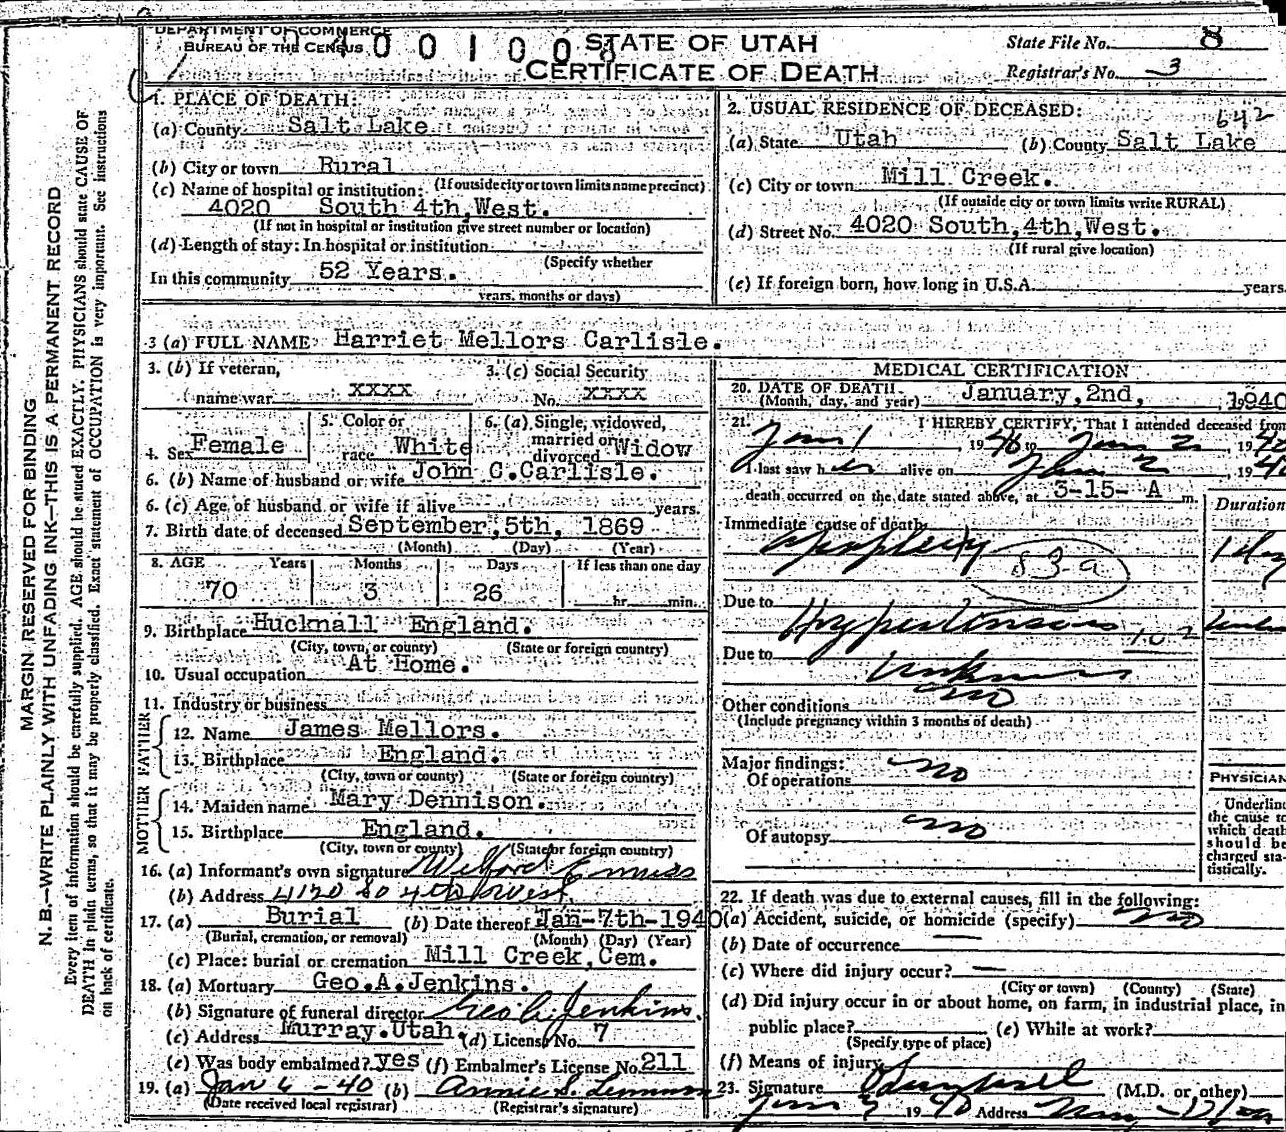 DEPARTMENT OF COMMERCE
BUREAU OF THE CENSUS
400100
STATE OF UTAH
CERTIFICATE OF DEATH
State File No. 8
Registrar's No. 3
MARGIN RESERVED FOR BINDING
N. B.—WRITE PLAINLY WITH UNFADING INK—THIS IS A PERMANENT RECORD
Every item of information should be carefully supplied. AGE should be stated EXACTLY. PHYSICIANS should state CAUSE OF
DEATH in plain terms, so that it may be properly classified. Exact statement of OCCUPATION is very important. See instructions
on back of certificate.
1. PLACE OF DEATH:
(a) County Salt Lake
(b) City or town Rural
(If outside city or town limits name precinct)
(c) Name of hospital or institution:
4020 South 4th, West.
(If not in hospital or institution give street number or location)
(d) Length of stay: In hospital or institution
(Specify whether
In this community 52 Years.
years, months or days)
2. USUAL RESIDENCE OF DECEASED:
642
(a) State Utah (b) County Salt Lake
(c) City or town Mill Creek.
(If outside city or town limits write RURAL)
(d) Street No. 4020 South, 4th, West.
(If rural give location)
(e) If foreign born, how long in U.S.A. years.
3 (a) FULL NAME Harriet Mellors Carlisle.
3. (b) If veteran, name war XXXX
3. (c) Social Security No. XXXX
4. Sex Female
5. Color or race White
6. (a) Single, widowed, married or divorced Widow
6. (b) Name of husband or wife John C. Carlisle.
6. (c) Age of husband or wife if alive years.
7. Birth date of deceased September, 5th, 1869
(Month) (Day) (Year)
8. AGE Years Months Days If less than one day
70 3 26 hr. min.
9. Birthplace Hucknall England.
(City, town, or county) (State or foreign country)
10. Usual occupation At Home.
11. Industry or business
FATHER
12. Name James Mellors.
13. Birthplace England.
(City, town or county) (State or foreign country)
MOTHER
14. Maiden name Mary Dennison.
15. Birthplace England.
(City, town or county) (State or foreign country)
16. (a) Informant's own signature
(b) Address 4120 So 4th West
17. (a) Burial (b) Date thereof Jan-7th-1940
(Burial, cremation, or removal) (Month) (Day) (Year)
(c) Place: burial or cremation Mill Creek, Cem.
18. (a) Mortuary Geo. A. Jenkins.
(b) Signature of funeral director Geo A. Jenkins.
(c) Address Murray. Utah. (d) License No. 7
(e) Was body embalmed? yes (f) Embalmer's License No. 211
19. (a) Jan 6 - 40 (b) Annie S.
(Date received local registrar) (Registrar's signature)
MEDICAL CERTIFICATION
20. DATE OF DEATH January, 2nd, 1940
(Month, day, and year)
21. I HEREBY CERTIFY, That I attended deceased from
Jan 1 1940 to Jan 2, 1940
I last saw her alive on Jan 2, 1940
death occurred on the date stated above, at 3-15- A m.
Duration
Immediate cause of death
Apoplexy 1 day
83-a
Due to
Hypertension 102
Due to
Unknown
Other conditions no
(Include pregnancy within 3 months of death)
Major findings:
Of operations no
Of autopsy no
PHYSICIAN
Underline
the cause to
which death
should be
charged sta-
tistically.
22. If death was due to external causes, fill in the following:
(a) Accident, suicide, or homicide (specify) no
(b) Date of occurrence —
(c) Where did injury occur? —
(City or town) (County) (State)
(d) Did injury occur in or about home, on farm, in industrial place, in
public place? (e) While at work?
(Specify type of place)
(f) Means of injury
23. Signature (M.D. or other)
1940 Address